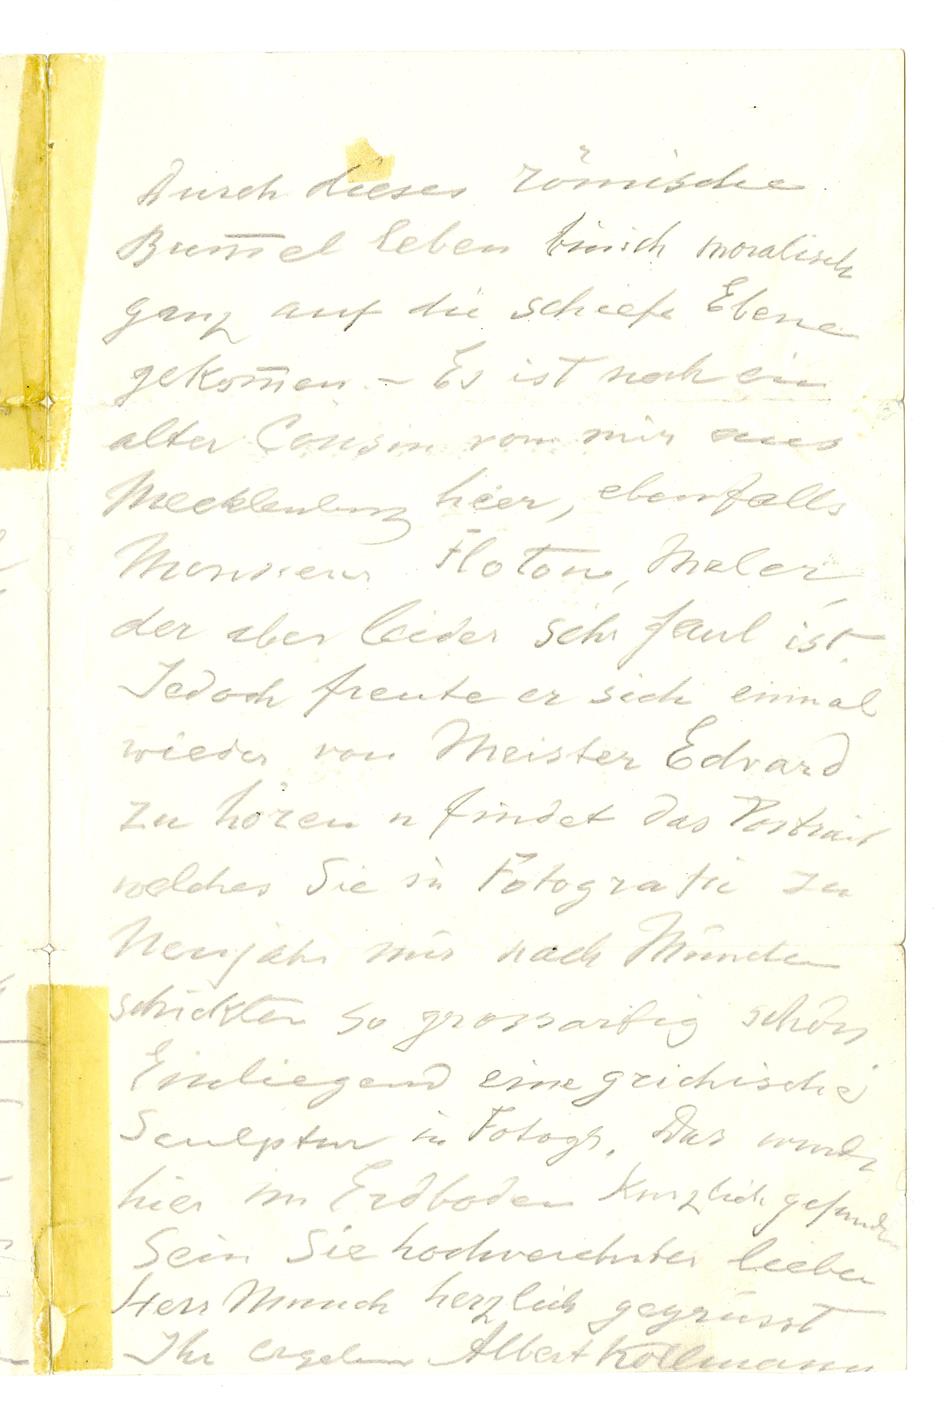 Durch dieses römische
Bum̄el leben bin ich moralisch
ganz auf die schiefe Ebene
gekom̄en – Es ist noch ein
alter Cousin von mir aus
Mecklenburg hier, ebenfalls
Monsieur Flotow, Maler,
der aber leider sehr faul ist.
Jedoch freute er sich einmal
wieder von Meister Edvard
zu hören u findet das Portrait
welches Sie in Fotografie zu
Neujahr mir nach München
schickten so grossartig schön
Einliegend eine grichische
Sculptur in Fotogr. Das wurde
hier im Erdboden kurzlich gefunden
Sein Sie hochverehrter lieber
Herr Munch herzlich gegrüsst
Ihr ergebener Albert Kollmann